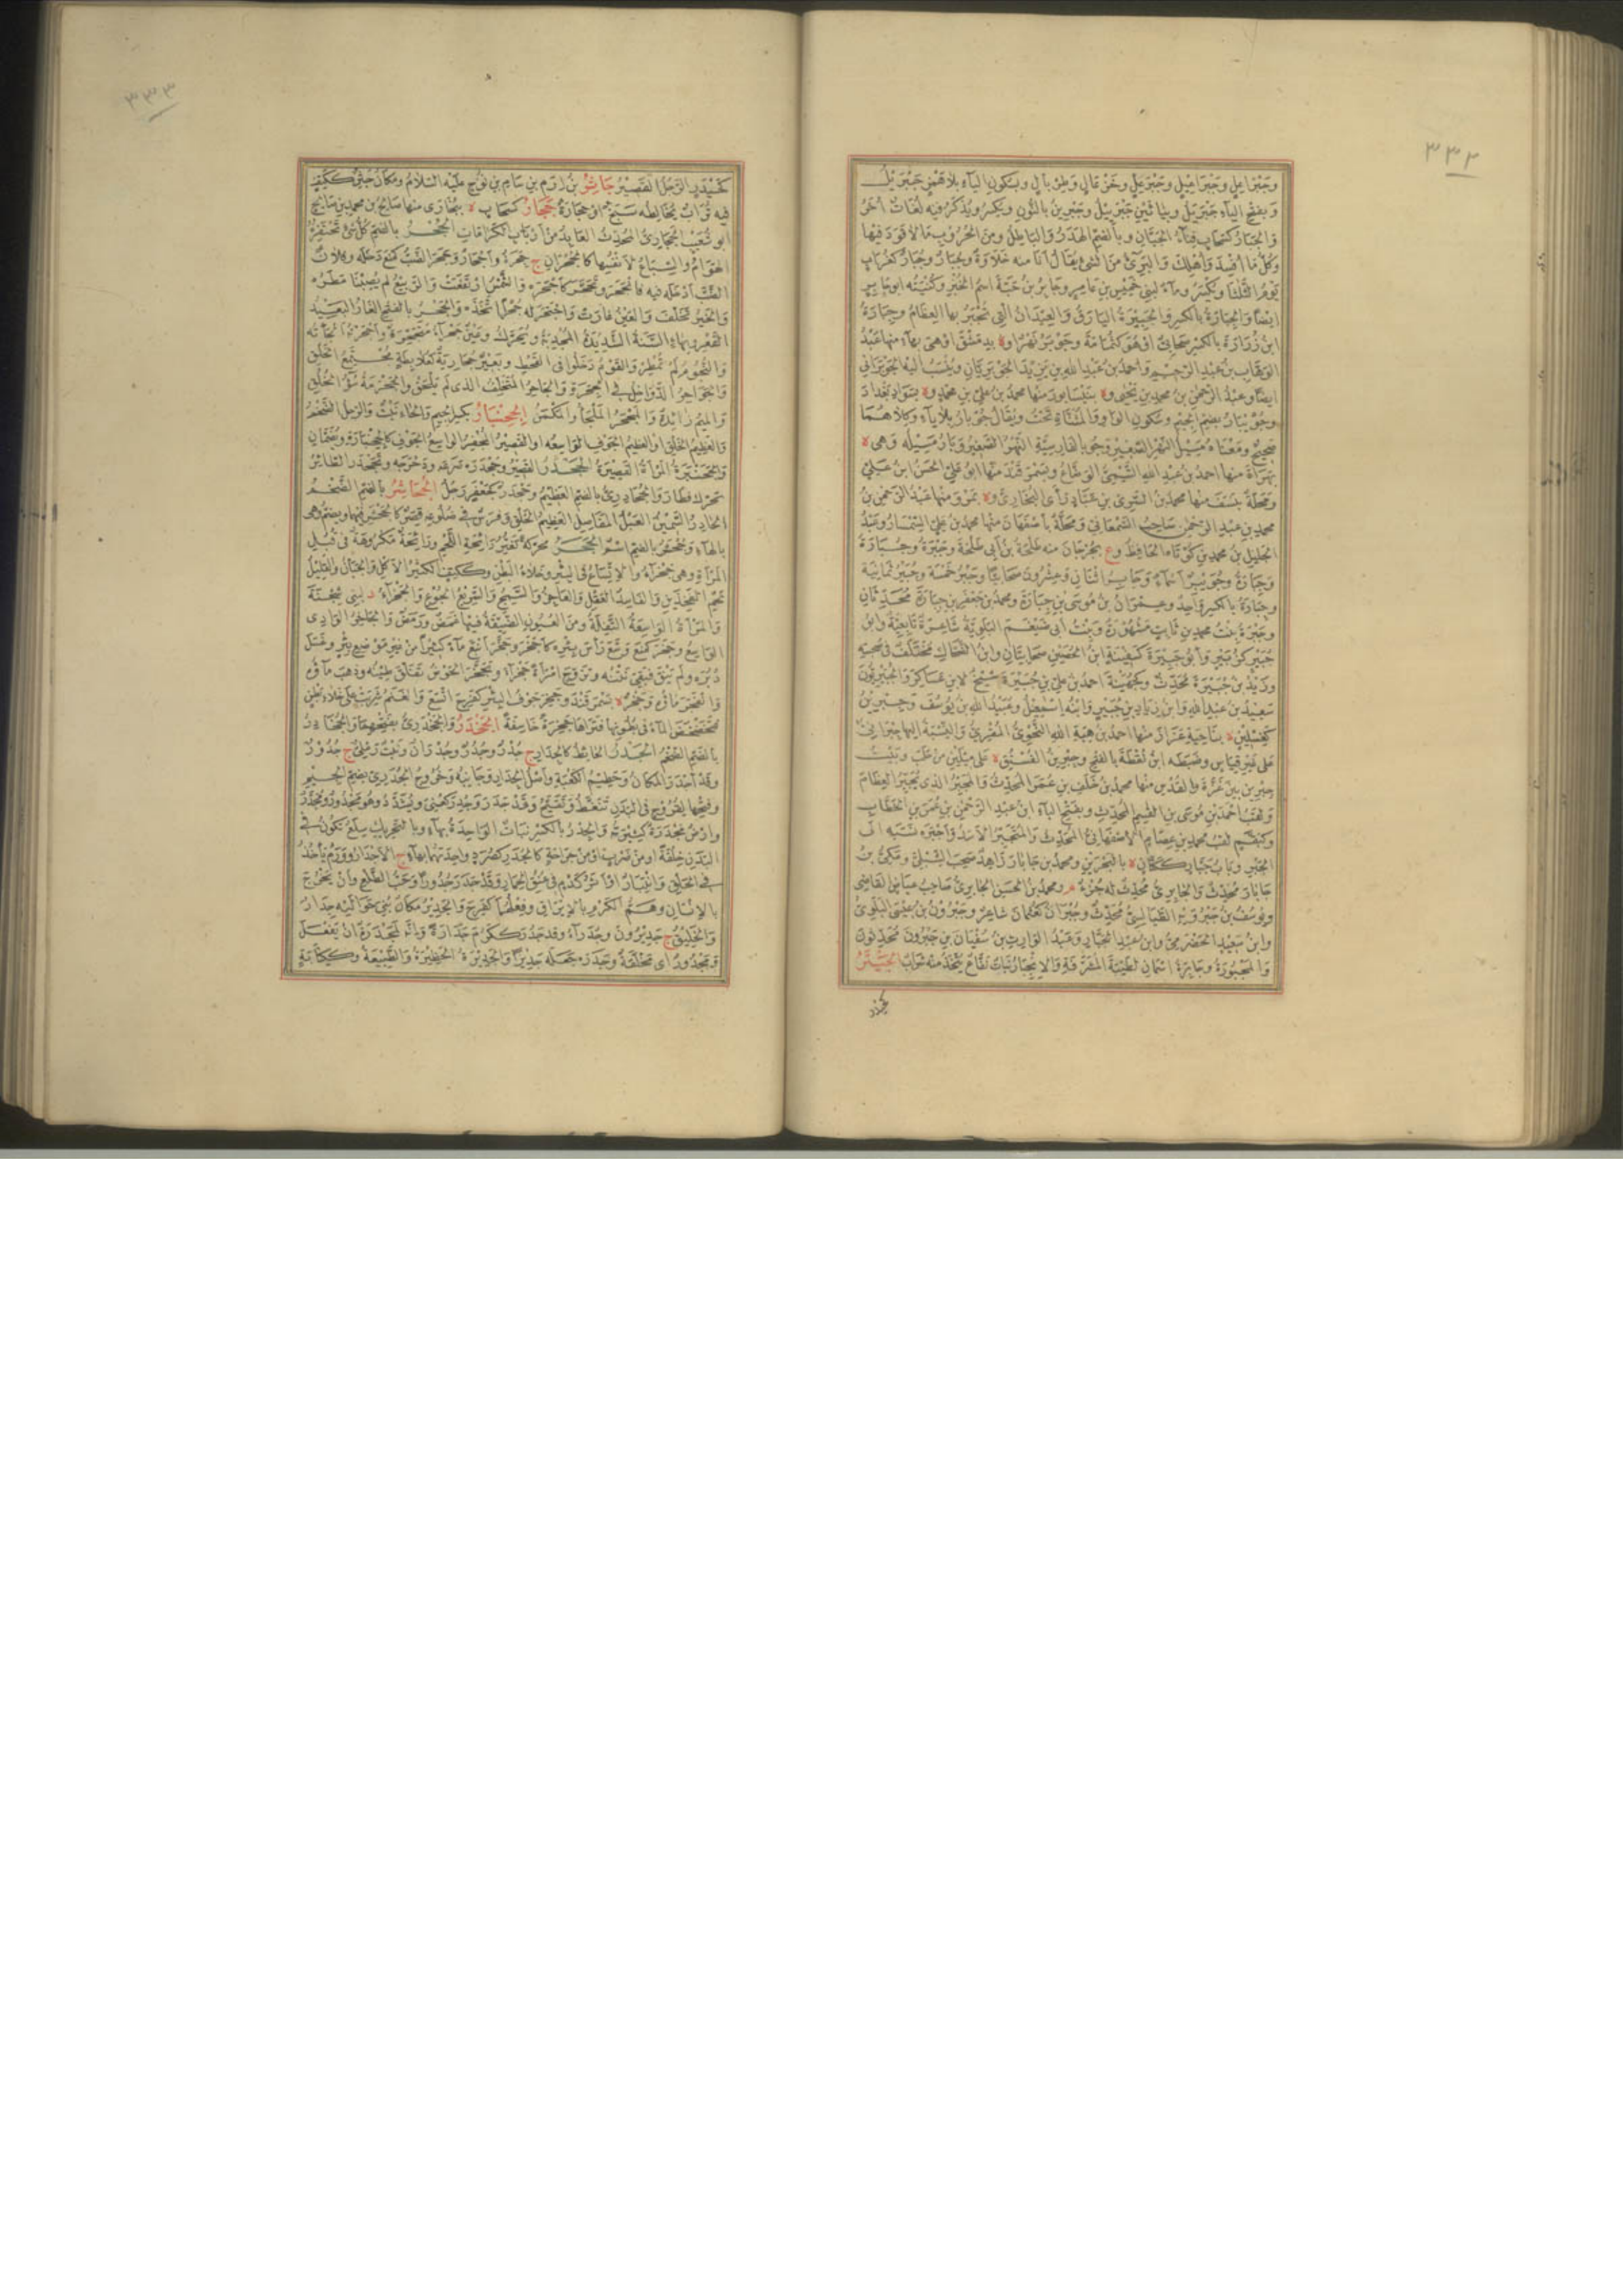 ٣٣٢
وجبراعل وجبراعيل وجبرعل وخزعال وطربال وبسكون الياء بلا همز جبريل
وبفتح الياء جبريل وبياءين جبرييل وجبرين بالنون ويكسر ويذكر فيه لغات أخر
والجبار كسحاب فناء الجبان وبالضم الهدر والباطل ومن الحروب ما لا قود فيها
وكل ما أفسد وأهلك والبرىء من الشىء يقال أنا منه خلاوة وجبار وجبار كغراب
يوم الثلثا ويكسر وماء لبنى حميس بن عامر وجابر بن حبة اسم الخبز وكنيته ابو جابر
ايضا والجبارة بالكسر والجبيرة اليارق والعيدان التى تجبر بها العظام وجبارة
ابن زرارة بالكسر صحابى او هو كثمامة وجوبر نهر او ة بدمشق او هى بهاء منها عبد
الوهاب بن عبد الرحيم واحمد بن عبد الله بن يزيد الجوبريان وينسب اليه الجوبرانى
ايضا وعبد الرحمن بن محمد بن يحيى و ة بنيسابور منها محمد بن على بن محمد و ة بسواد بغداد
وجويبار بضم الجيم وسكون الواو والمثناة تحت ويقال جوبار بلا ياء وكلاهما
صحيح ومعناه مسيل النهر الصغير وجو بالفارسية النهر الصغير وبار مسيله وهى ة
بهراة منها احمد بن عبد الله التيمى الوضاع وبسمرقند منها ابو على الحسن ابن على
ومحلة بنسف منها محمد بن السرى بن عباد رأى البخارى و ة بمرو منها عبد الرحمن بن
محمد بن عبد الرحمن صاحب السمعانى ومحلة باصفهان منها محمد بن على السمسار وعبد
الجليل بن محمد بن كوتاه الحافظ و ع بجرجان منه طلحة بن أبى طلحة وجبرة وجبارة
وجبارة وجويبر أسماء وجابر اثنان وعشرون صحابيا وجبر خمسة وجبير ثمانية
وجبارة بالكسر واحد وعمران بن موسى بن جبارة ومحمد بن جعفر بن جبارة محدثان
وجبرة بنت محمد بن ثابت مشهورة وبنت أبى ضيغم البلوية شاعرة تابعية وابو
جبير كزبير وأبو جبيرة كسفينة ابن الحصين صحابيان وابن الضحاك مختلف فى صحبته
وزيد بن جبيرة محدث وكجهينة احمد بن على بن جبيرة شيخ لابن عساكر والجبيريون
سعيد بن عبد الله وابن زياد بن جبير وابنه إسمعيل وعبيد الله بن يوسف وجبرين
كغسلين ة بناحية عزاز منها احمد بن هبة الله النحوى المقرئ والنسبة اليها جبرانى
على غير قياس وضبطه ابن نقطة بالفتح وجبرين الفستق ة على ميلين من حلب وبيت
جبرين بين غزة والقدس منها محمد بن خلف بن عمر المحدث والمجبر الذى يجبر العظام
ولقب احمد بن موسى بن القسم المحدث وبفتح الباء ابن عبد الرحمن بن عمر بن الخطاب
وكبقم لقب محمد بن عصام الاصفهانى المحدث والمتجبر الاسد وأجبره نسبه الى
الجبر وباب جبار ككتان ة بالبحرين ومحمد بن جابار زاهد صحب الشبلى ومكى بن
جابار محدث والجابرى محدث له جزء م ومحمد بن الحسن الجابرى صاحب عياض القاضى
ويوسف بن جبرويه الطيالسى محدث وجبران كعثمان شاعر وجبرون بن عيسى البلوى
وابن سعيد الحضرمى وابن عبد الجبار وعبد الوارث بن سفيان بن جبرون محدثون
والمجبورة وجابرة اسمان لطيبة المشرفة والانجبار نبات نفاع يتخذ منه شراب الجيتر
كحيدر
٣٣٣
كحيدر الرجل القصير جاثر بن ارم بن سام بن نوح عليه السلام ومكان جثر ككتف
فيه تراب يخالطه سبخ او حجارة ججار كسحاب ة ببخارى منها صالح بن محمد بن صالح
ابو شعيب الججارى المحدث العابد من أرباب الكرامات الجحر بالضم كل شىء تحتفره
الهوام والسباع لأنفسها كالجحران ج جحرة وأجحار وجحر الضب كمنع دخله وفلان
الضب أدخله فيه فانجحر وتجحر كأجحره والشمس ارتفعت والربيع لم يصبنا مطره
والخير تخلف والعين غارت واجتحر له جحرا اتخذه والجحر بالفتح الغار البعيد
القعر وبهاء السنة الشديدة المجدبة ويحرك وعين جحراء متجحرة وأجحرته ألجأته
والنجوم لم تمطر والقوم دخلوا فى القحط وبعير جحارية كعلابطة مجتمع الخلق
والجواحر الدواخل فى الجحرة والجاحر المتخلف الذى لم يلحق والجحرمة سوء الخلق
والميم زائدة والمجحر الملجأ والمكمن الجحنبار بكسر الجيم والحاء نبت والرجل الضخم
والعظيم الخلق او العظيم الجوف الواسعه او القصير المجفر الواسع الجوف كالجحنبارة ويفتحان
والجحنبرة المرأة القصيرة الجحدر القصير وجحدره صرعه ودحرجه وتجحدر الطائر
تحرك فطار والجحادرى بالضم العظيم وجحدر كجعفر رجل الجحاشر بالضم الضخم
الحادر السمين العبل المفاصل العظيم الخلق وفرس فى ضلوعه قصر كالجحشر فيهما وبضم وهى
بالهاء وجحشر بالضم اسم الجخر محركة تغير رائحة اللحم ورائحة مكروهة فى قبل
المرأة وهى جخراء والاتساع فى البئر وخلاء البطن وككتف الكثير الأكل والجبان والقليل
لحم الفخذين والفاسد العقل والعاجز والسمج والسريع الجوع والجخراء د لبنى شجنة
والمرأة الواسعة التفلة ومن العيون الضيقة فيها غمص ورمص والجاخر الوادى
الواسع وجخر كمنع وسع رأس بئره كأجخر وجخر أنبع ماء كثيرا من غير موضع بئر وغسل
دبره ولم ينق فبقى نتنه وتزوج امرأة جخراء وتجخر الحوض تفلق طينه وذهب ماؤه
والجخر ماؤه وجخر ة بسمرقند وجخر جوف البئر كفرح اتسع والغنم شربت على خلاء بطن
فتخضخض الماء فى بطونها فتراها جخرة خاسفة الجخدر والجخدرى بفتحهما والجخادر
بالضم الضخم الجدر الحائط كالجدار ج جدر وجدر وجدران ونبت رملى ج جدور
وقد أجدر المكان وحطيم الكعبة وأصل الجدار وجانبه وخروج الجدرى بضم الجيم
وفتحها لقروح فى البدن تنفط وتقيح وقد جدر وجدر كعنى ويشدد وهو مجدور ومجدر
وارض مجدرة كثيرته والجدر بالكسر نبات الواحدة بهاء وبالتحريك سلع تكون فى
البدن خلقة أو من ضرب او من جراحة كالجدر كصرد واحدتهما بهاء ج الأجدار وورم يأخذ
فى الحلق وانتبار او اثر كدم فى عنق الحمار وقد جدر جدورا وحب الطلع وأن يخرج
بالانسان وهم الكرم بالايراق وفعلهما كفرح والجدير مكان بنى حواليه جدار
والخليق ج جديرون وجدراء وقد جدر ككرم جدارة وانه لمجدرة ان يفعل
ومجدور أى مخلقة وجدره جعله جديرا والجديرة الحظيرة والطبيعة وككتابة